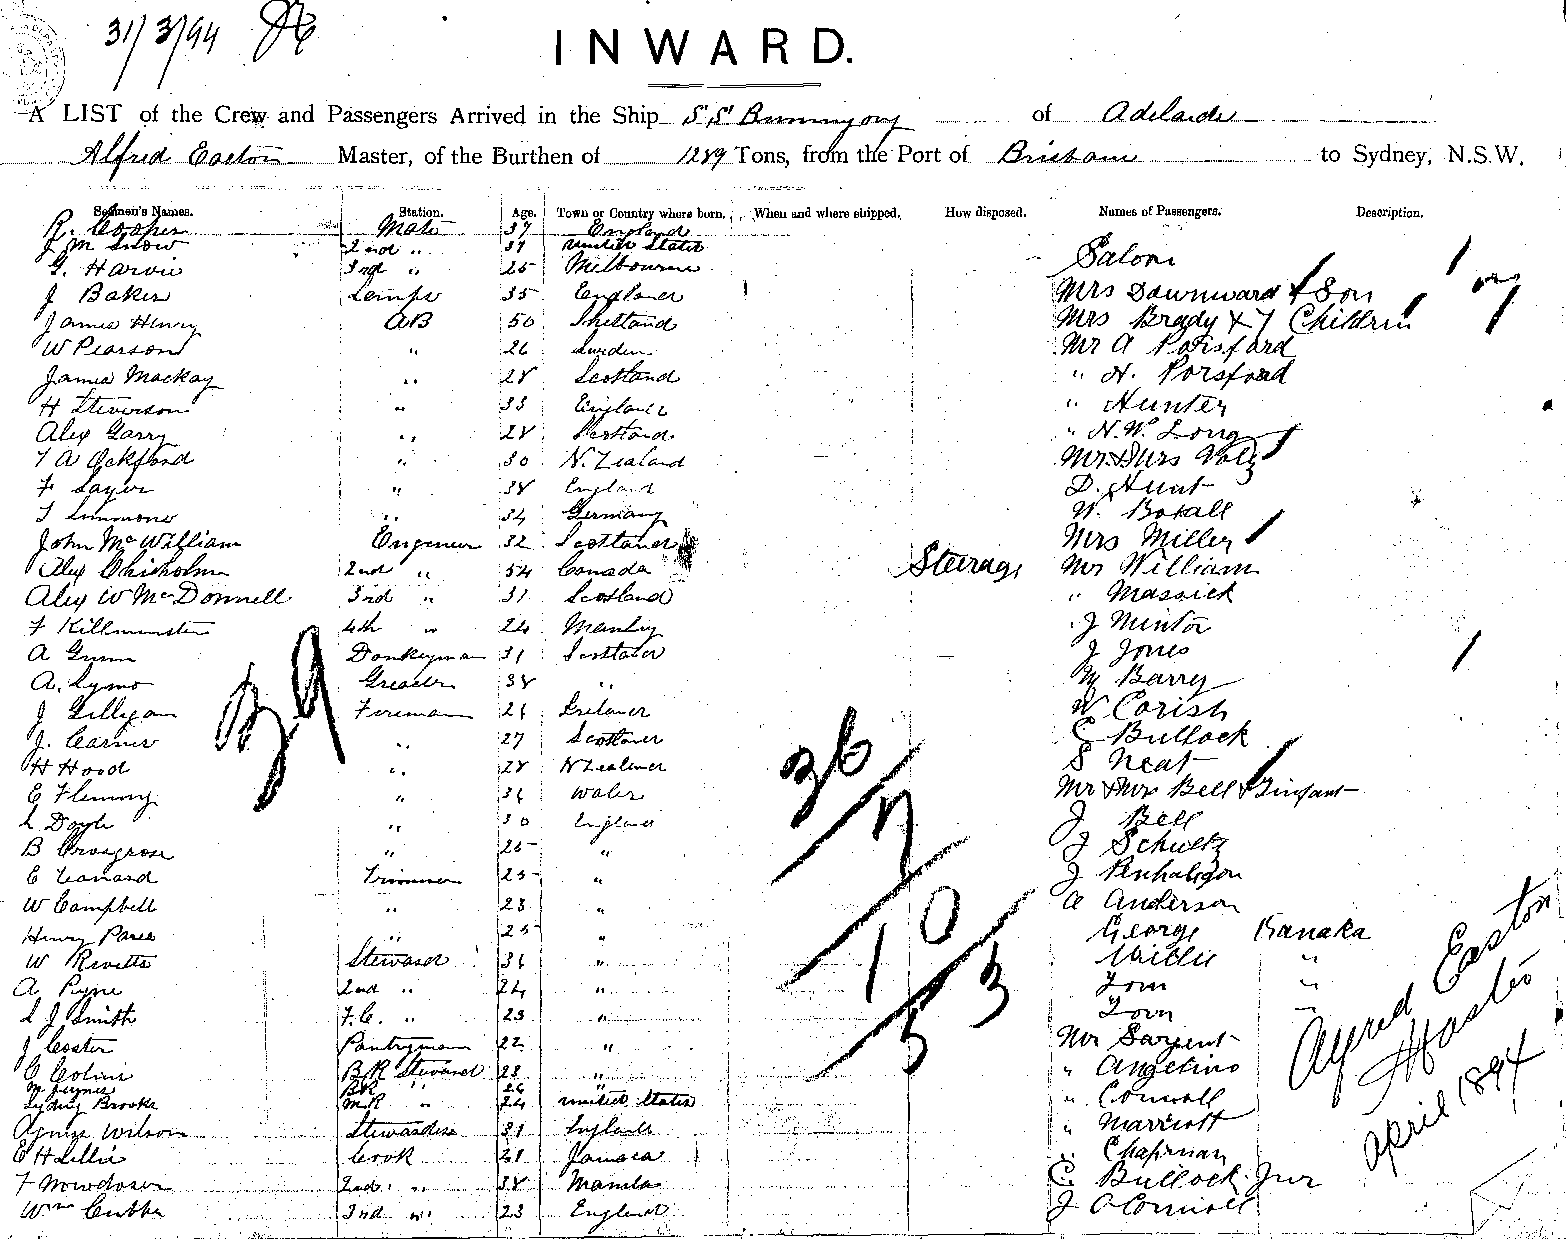 31/3/94
INWARD.
A LIST of the Crew and Passengers Arrived in the Ship S.S. Bunninyong of Adelaide
Alfred Easton Master, of the Burthen of 1289 Tons, from the Port of Brisbane to Sydney, N.S.W.
Seamen's Names. Station. Age. Town or Country where born. When and where shipped. How disposed. Names of Passengers. Description.
R. Cooper Mate 37 England
J M Snow 2nd " 31 United States Saloon
G. Harvie 3rd " 25 Melbourne
J Baker Lamps 35 England Mrs Downward & Son
James Henry AB 50 Shetland Mrs Brady & 7 Children
W Pearson " 26 Sweden Mr A
James Mackay " 28 Scotland " H. Porsford
H Steverson " 33 England " Hunter
Alex Garry " 28 Scotland " H.W. Long
T A Ockford " 30 N. Zealand Mr & Mrs Volz
F Sayer " 38 England D. Hunt
T Simmons " 34 Germany W. Boxall
John McWilliam Engineer 32 Scotland Mrs Miller
Alex Chisholm 2nd " 54 Canada Steerage Mr William
Alex W McDonnell 3rd " 31 Scotland " Massick
F Killminster 4th " 24 Manly J Mintor
A Gunn Donkeyman 31 Scotland J Jones
A. Symo Greaser 38 " M Barry
J Gilligan Fireman 26 Ireland W Corish
J. Carner " 27 Scotland C Bullock
H Hood " 28 N Zealand S Neat
E Fleming " 36 Wales Mr & Mrs Bell & Infant
L Doyle " 30 England J Bell
B Crosgrose " 25 " J Schultz
E Leonard Trimmer 25 " J Penhaligon
W Campbell " 23 " A Anderson
Henry " 25 " George Kanaka
W Rivetts Steward 36 " Willie "
A Pyne 2nd " 24 " Tom "
L J Smith F.C. " 23 " Tom "
J Coster Pantryman 22 " Mr Sargent
C Colins B R Steward 23 " " Angelino
M BR " 26 "
Sydney Brooks M R " 24 United States " Connoll
Agnes Wilson Stewardess 31 England " Marriott
E H Lillie Cook 21 Jamaca " Chapman
F 2nd " 38 Manila C. Bullock Jnr
Wm Cubba 3rd " 23 England J OConnoll
39
36
7
10
53
Alfred Easton
Master
April 1894